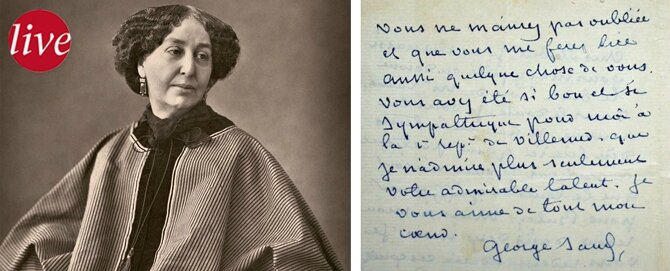 live
vous ne m'avez pas oubliée
et que vous me ferez lire
aussi quelque chose de vous.
Vous avez été si bon et si
sympathique pour moi à
la 1re repon de Villemer, que
je n'admire plus seulement
votre admirable talent. Je
vous aime de tout mon
cœur.
George Sand